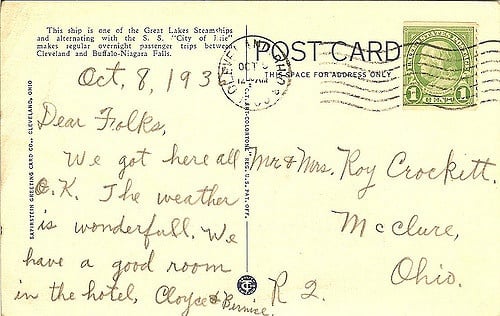 This ship is one of the Great Lakes Steamships
and alternating with the S. S. "City of Erie"
makes regular overnight passenger trips between
Cleveland and Buffalo-Niagara Falls.
Oct, 8, 193
Dear Folks,
We got here all
O.K. The weather
is wonderfull. We
have a good room
in the hotel, Cloyce & Bernice.
SAPIRSTEIN GREETING CARD CO., CLEVELAND, OHIO
REG. U.S. PAT. OFF.
POST CARD
THIS SPACE FOR ADDRESS ONLY
CLEVELAND OHIO
OCT
1
1
Mr & Mrs. Roy Crockett.
McClure,
Ohio.
R 2.